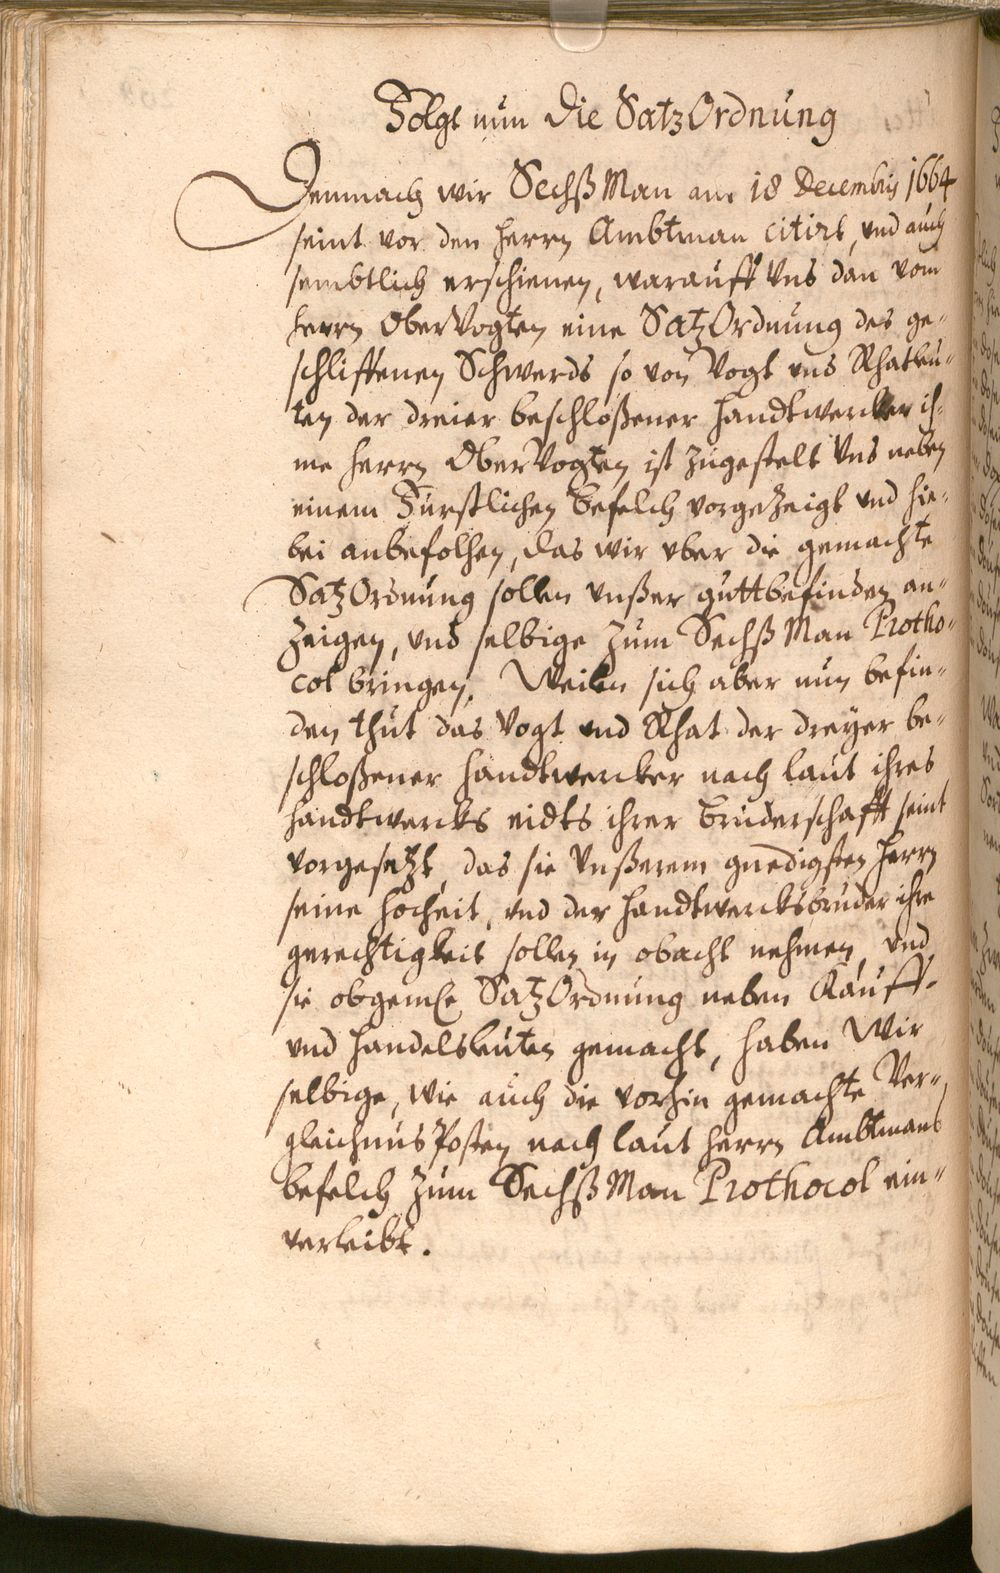 Folgt nun die SatzOrdnung
Demnach wir SechßMan am 18 Decembris 1664
seint vor den herrn Ambtman citirt, und auch
sembtlich erschienen, warauff Uns dan vom
herrn OberVogten eine SatzOrdnung des ge-
schliffenen Schwerds so von Vogt und Rhatleu-
ten der dreier beschloßener handtwercker ih-
me herrn OberVogten ist zugestelt Uns neben
einem Fürstlichen befelch vorgezeigt und hie-
bei anbefolhen, das wir uber die gemachte
SatzOrdnung sollen unßer guttbefinden an-
zeigen, und selbige zum SechßMan Protho-
col bringen. Weilen sich aber nun befin-
den thut das Vogt und Rhat der dreyer be-
schloßener handtwercker nach laut ihres
handtwercks eidts ihrer bruderschafft seint
vorgesetzt, das sie Unßerem gnedigsten herrn
seine hocheit, und der handtwercksbruder ihre
gerechtigkeit sollen in obacht nehmen, und
sie obgemelte SatzOrdnung neben Kauff-
und handelsleuten gemacht, haben Wir
selbige, wie auch die vorhin gemachte Ver-
gleichnus Posten nach laut herrn Ambtmans
befelch zum SechßMan Prothocol ein-
verleibt.